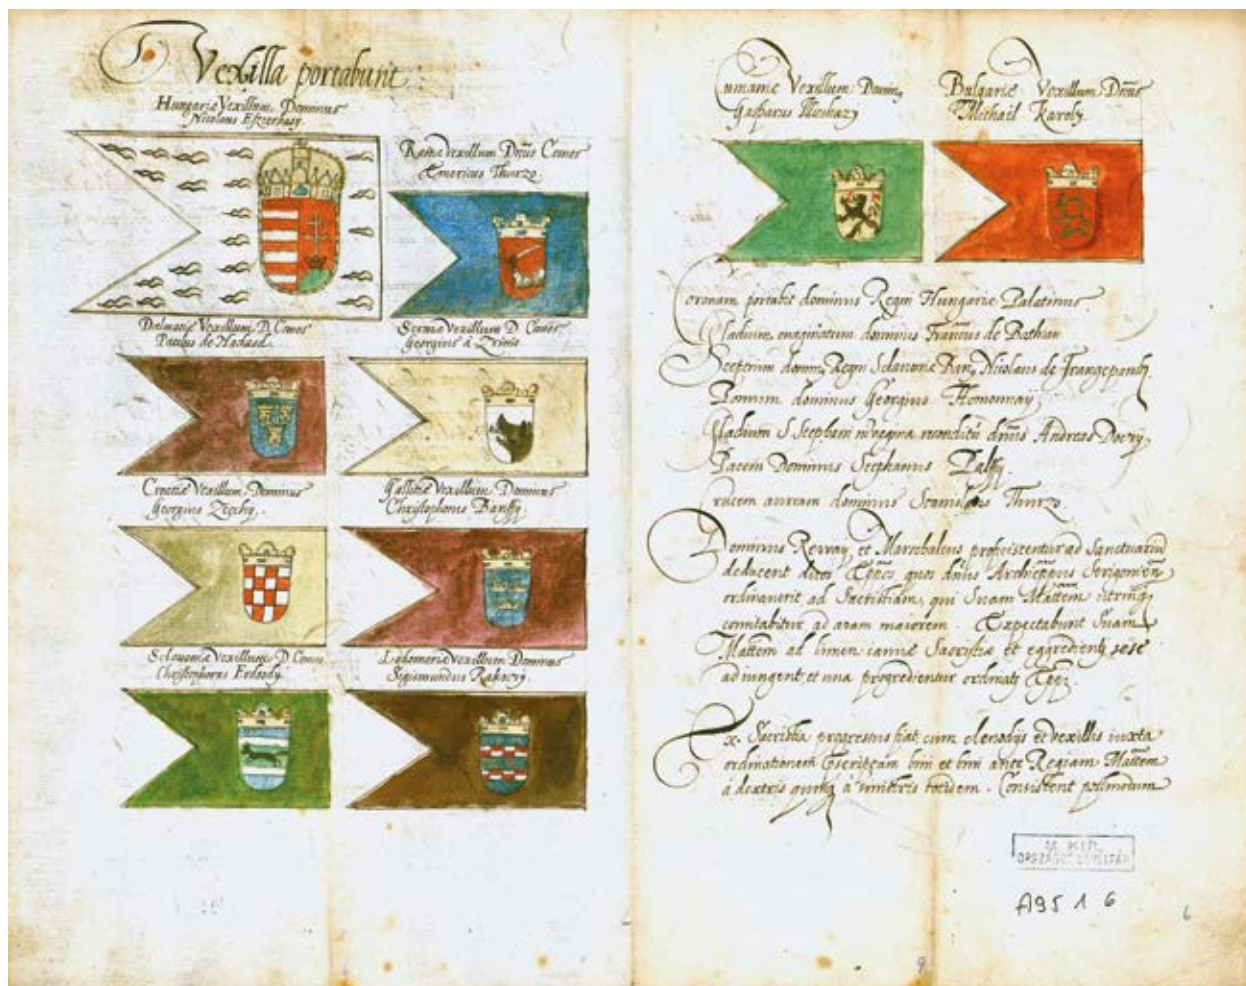 Vexilla portabunt
Hungariæ Vexillum Dominus
Nicolaus Eszterhasy
Rasciæ Vexillum Dñus Comes
Emericus Thurzo
Dalmatiæ Vexillum D. Comes
Paulus de Nadasd
Serviæ Vexillum D. Comes
Georgius à Zrinio
Croatiæ Vexillum Dominus
Georgius Zechy
Galliciæ Vexillum Dominus
Christophorus Banffy
Sclavoniæ Vexillum D. Comes
Christophorus Erdeody
Lodomeriæ Vexillum Dominus
Sigismundus Rakoczy
Cumaniæ Vexillum Domin9
Gasparus Illieshazy
Bulgariæ Vexillum Dñus
Michael Karoly
Coronam portabit dominus Regni Hungariæ Palatinus
Gladium evaginatum dominus Franciscus de Bothian
Sceptrum domin9 Regni Sclavoniæ Ban9 Nicolaus de Frangepanib9
Pomum dominus Georgius Homonnay
Gladium S Stephani in vagina reconditũ dñus Andreas Doczy
Pacem Dominus Stephanus Palffy
Crucem auream dominus Stanislaus Thurzo
Dominus Revay et Marschalcus proficiscentur ad Sanctuariũ
deducent duos Eppos quos dñus Archieppus Strigonien
ordinaverit ad Sacristiam, qui Suam Mattem utrinq
comitabitur ad aram maiorem. Expectabunt Suam
Mattem ad limen ianuæ Sacristiæ et egredienti sese
adiungent, et una progredientur ordinatj Eppi.
Ex Sacristia progressus fiat cum clenodijs et vexillis iuxta
ordinationem bini et bini ante Regiam Mattem
à dextris quinq à sinistris totidem. Consistent postmodum
M. KIR.
ORSZÁGOS LEVÉLTÁR
A95 1 6
6
9